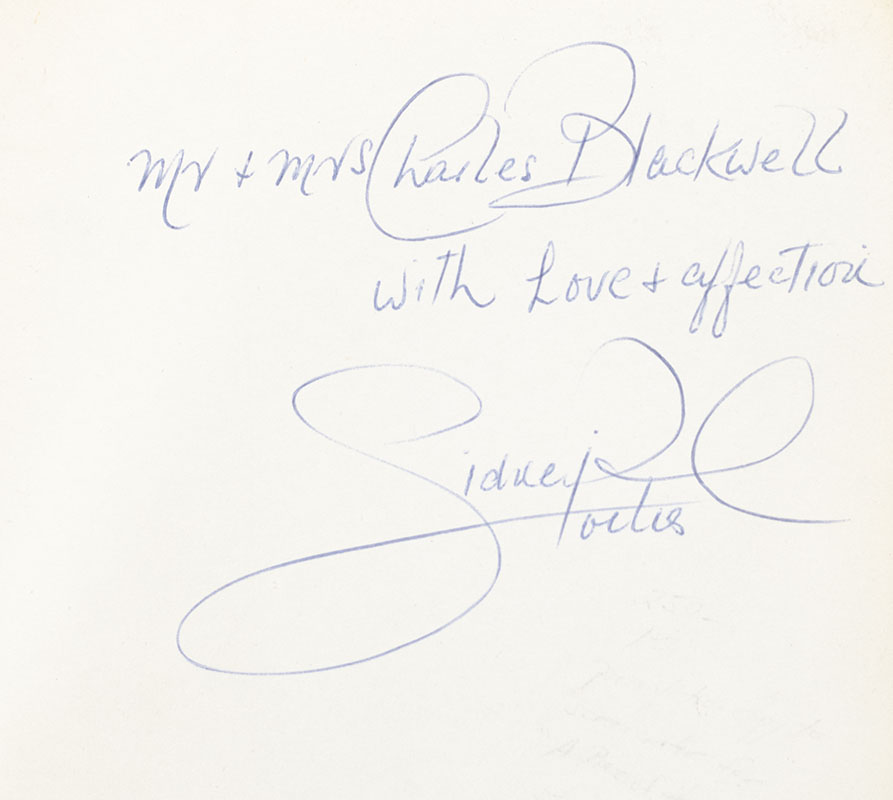 Mr + Mrs Charles Blackwell
with Love + affection
Sidney Poitier